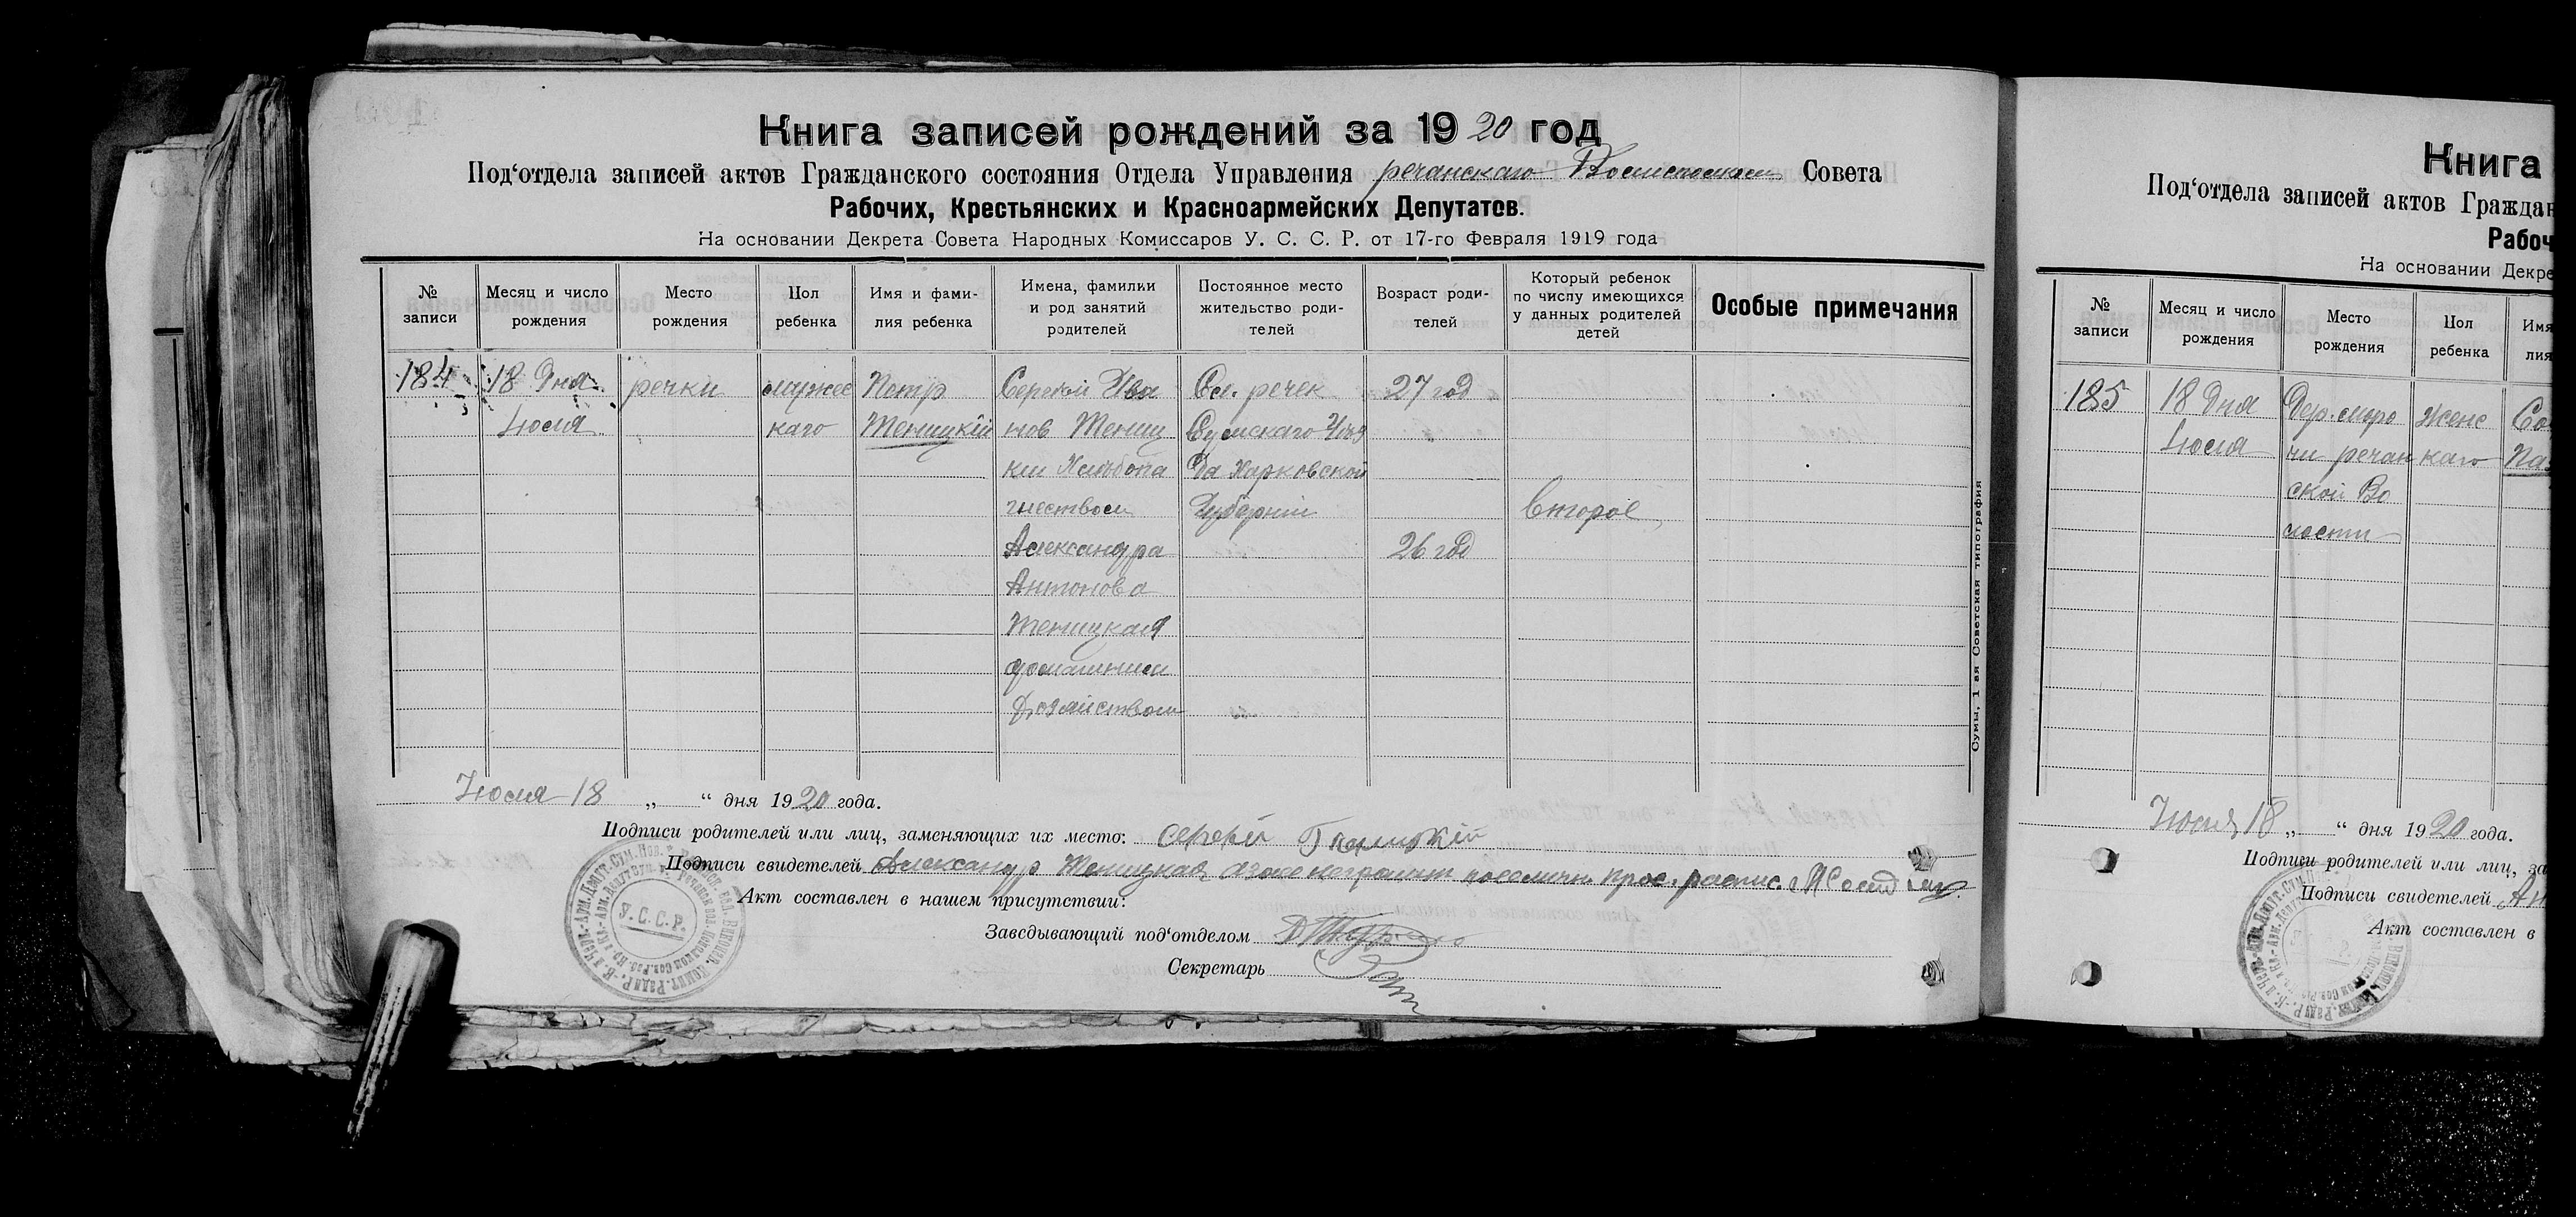 Книга записей рождений за 1920 год
Под‘отдела записей актов Гражданского состояния Отдела Управления речанскаго Совета
Рабочих, Крестьянских и Красноармейских Депутатов.
На основании Декрета Совета Народных Комиссаров У. С. С. Р. от 17-го Февраля 1919 года
№ записи
Месяц и число рождения
Место рождения
Пол ребенка
Имя и фами-
лия ребенка
Имена, фамилии
и род занятий
родителей
Постоянное место
жительство роди-
телей
Возраст роди-
телей
Который ребенок
по числу имеющихся
у данных родителей
детей
Особые примечания
184
18 Дня
Июля
речки
мужес
каго
Петр
Теницкій
Сергей Ива
нов Тениц
кій Хлебопа
шеством
Александра
Антонова
Теницкая
домашним
Хозяйством
Сел. речек
Сумскаго Уез
да Харковской
Губерніи
27 год
26 год
второе
Июля 18 „ “ дня 1920 года.
Подписи родителей или лиц, заменяющих их место: Сергей
Подписи свидетелей Александра Теницкая а за неграмотн
Акт составлен в нашем присутствии:
Заведывающий под‘отделом
Секретарь
У.С.С.Р.
Сумы, 1 ая Советская типография
Книга
Под‘отдела записей актов Граждан
Рабоч
На основании Декре
№ записи
Месяц и число рождения
Место рождения
Пол ребенка
Имя
лия
185
18 Дня
Июля
Дер.
речан
ской Во
лости
Женс
каго
Июля 18 „ “ дня 1920 года.
Подписи родителей или лиц, за
Подписи свидетелей Ан
Акт составлен в